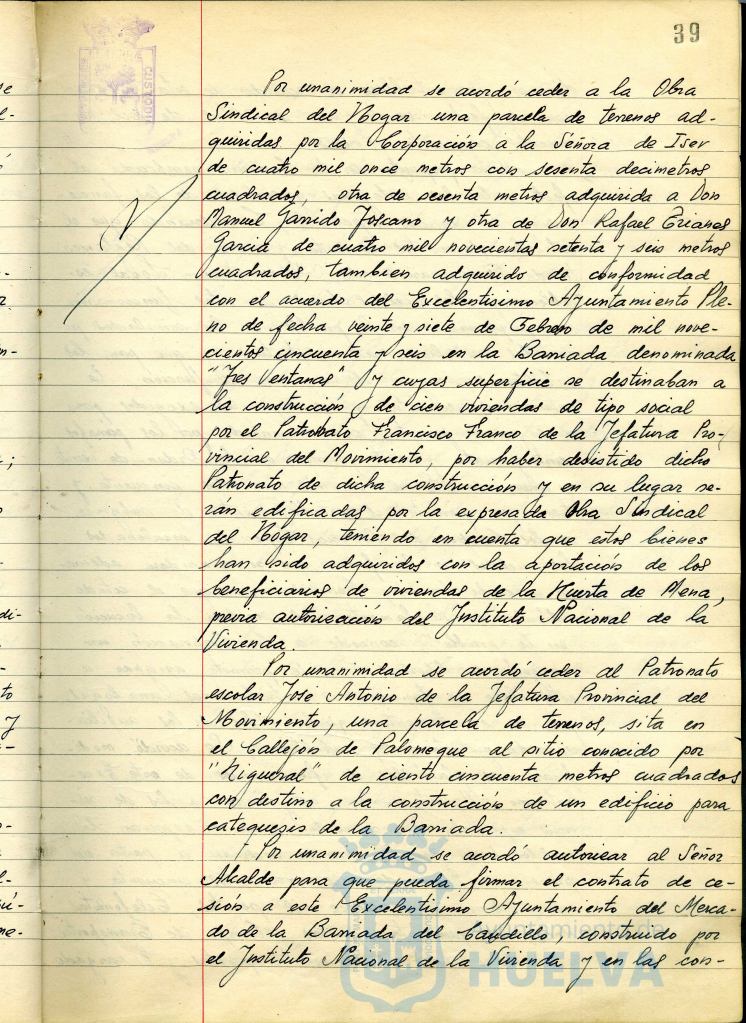 39
Por unanimidad se acordó ceder a la Obra
Sindical del Hogar una parcela de terrenos ad-
quiridas por la Corporación a la Señora de Isev
de cuatro mil once metros con sesenta decimetros
cuadrados, otra de sesenta metros adquirida a Don
Manuel Garrido Toscano y otra de Don Rafael Erianes
Garcia de cuatro mil novecientas setenta y seis metros
cuadrados, tambien adquirido de conformidad
con el acuerdo del Excelentisimo Ayuntamiento Ple-
no de fecha veinte y siete de Febrero de mil nove-
cientos cincuenta y seis en la Barriada denominada
"Tres Ventanas" y cuyas superficie se destinaban a
la construcción de cien viviendas de tipo social
por el Patronato Francisco Franco de la Jefatura Pro-
vincial del Movimiento, por haber desistido dicho
Patronato de dicha construcción y en su lugar se-
rán edificadas por la expresada Obra Sindical
del Hogar, teniendo en cuenta que estos bienes
han sido adquiridos con la aportación de los
beneficiarios de viviendas de la Huerta de Mena,
previa autorización del Instituto Nacional de la
Vivienda.
Por unanimidad se acordó ceder al Patronato
escolar José Antonio de la Jefatura Provincial del
Movimiento, una parcela de terrenos, sita en
el Callejón de Palomeque al sitio conocido por
"Higueral" de ciento cincuenta metros cuadrados
con destino a la construcción de un edificio para
catequesis de la Barriada.
Por unanimidad se acordó autorizar al Señor
Alcalde para que pueda firmar el contrato de ce-
sión a este Excelentisimo Ayuntamiento del Merca-
do de la Barriada del Caudillo, construido por
el Instituto Nacional de la Vivienda y en las con-
HUELVA